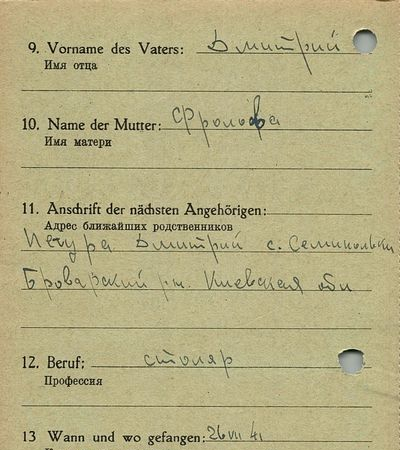 9. Vorname des Vaters: Дмитрий
Имя отца
10. Name der Mutter: Фролова
Имя матери
11. Anschrift der nächsten Angehörigen:
Адрес ближайших родственников
Печура Дмитрий с. Семиполки
Броварский р-н. Киевская обл
12. Beruf: столяр
Профессия
13 Wann und wo gefangen: 26 VII 41